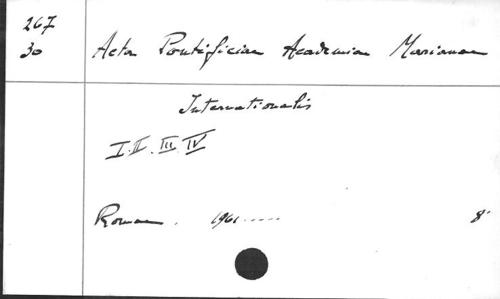 267
30 Acta Pontificiae Academiae Marianae
Internationalis
I. II. III. IV
Romae. 1961.....
8°